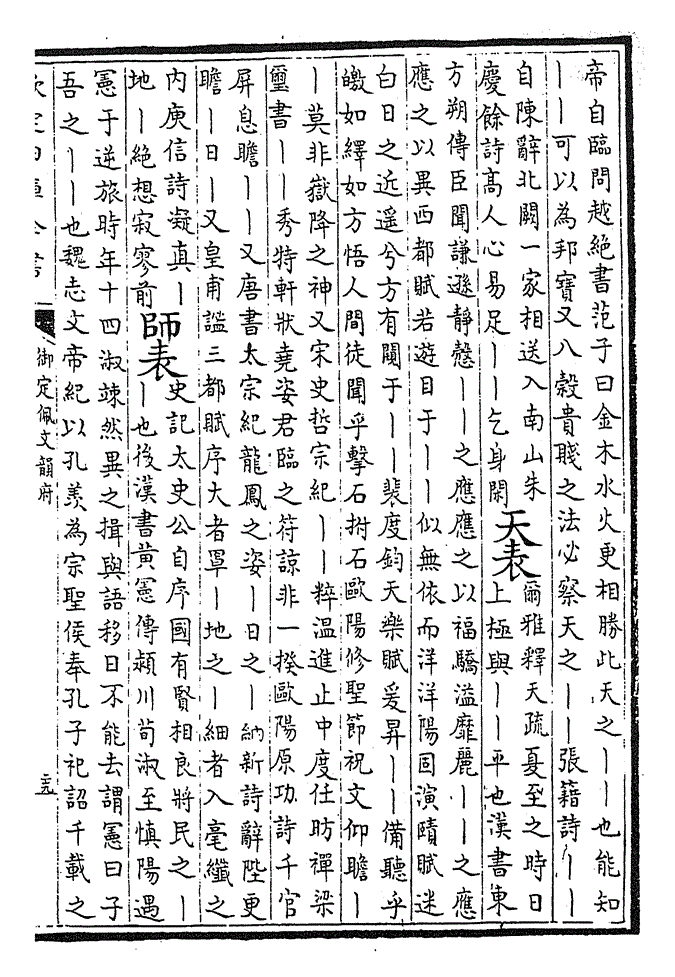 帝自臨問越絶書范子曰金木水火更相勝此天之｜｜也能知
｜｜可以為邦寶又八穀貴賤之法必察天之｜｜張籍詩｜｜
自陳辭北闕一家相送入南山朱
慶餘詩髙人心易足｜｜乞身閑
天表
爾雅釋天疏夏至之時日
上極與｜｜平也漢書東
方朔傳臣聞謙遜靜慤｜｜之應應之以福驕溢靡麗｜｜之應
應之以異西都賦若遊目于｜｜似無依而洋洋陽固演賾賦迷
白日之近遥兮方有闗于｜｜裴度鈞天樂賦爰昇｜｜備聽乎
皦如繹如方悟人間徒聞乎擊石拊石歐陽修聖節祝文仰瞻｜
｜莫非嶽降之神又宋史哲宗紀｜｜粹温進止中度任昉禪梁
璽書｜｜秀特軒狀堯姿君臨之符諒非一揆歐陽原功詩千官
屏息瞻｜｜又唐書太宗紀龍鳳之姿｜日之｜納新詩辭陛更
瞻｜日｜又皇甫謐三都賦序大者罩｜地之｜細者入毫纖之
内庾信詩凝真｜
地｜絶想寂寥前
師表
史記太史公自序國有賢相良將民之｜
｜也後漢書黄憲傳潁川荀淑至慎陽遇
憲于逆旅時年十四淑竦然異之揖與語移日不能去謂憲曰子
吾之｜｜也魏志文帝紀以孔羨為宗聖侯奉孔子祀詔千載之
欽定四庫全書
御定佩文韻府